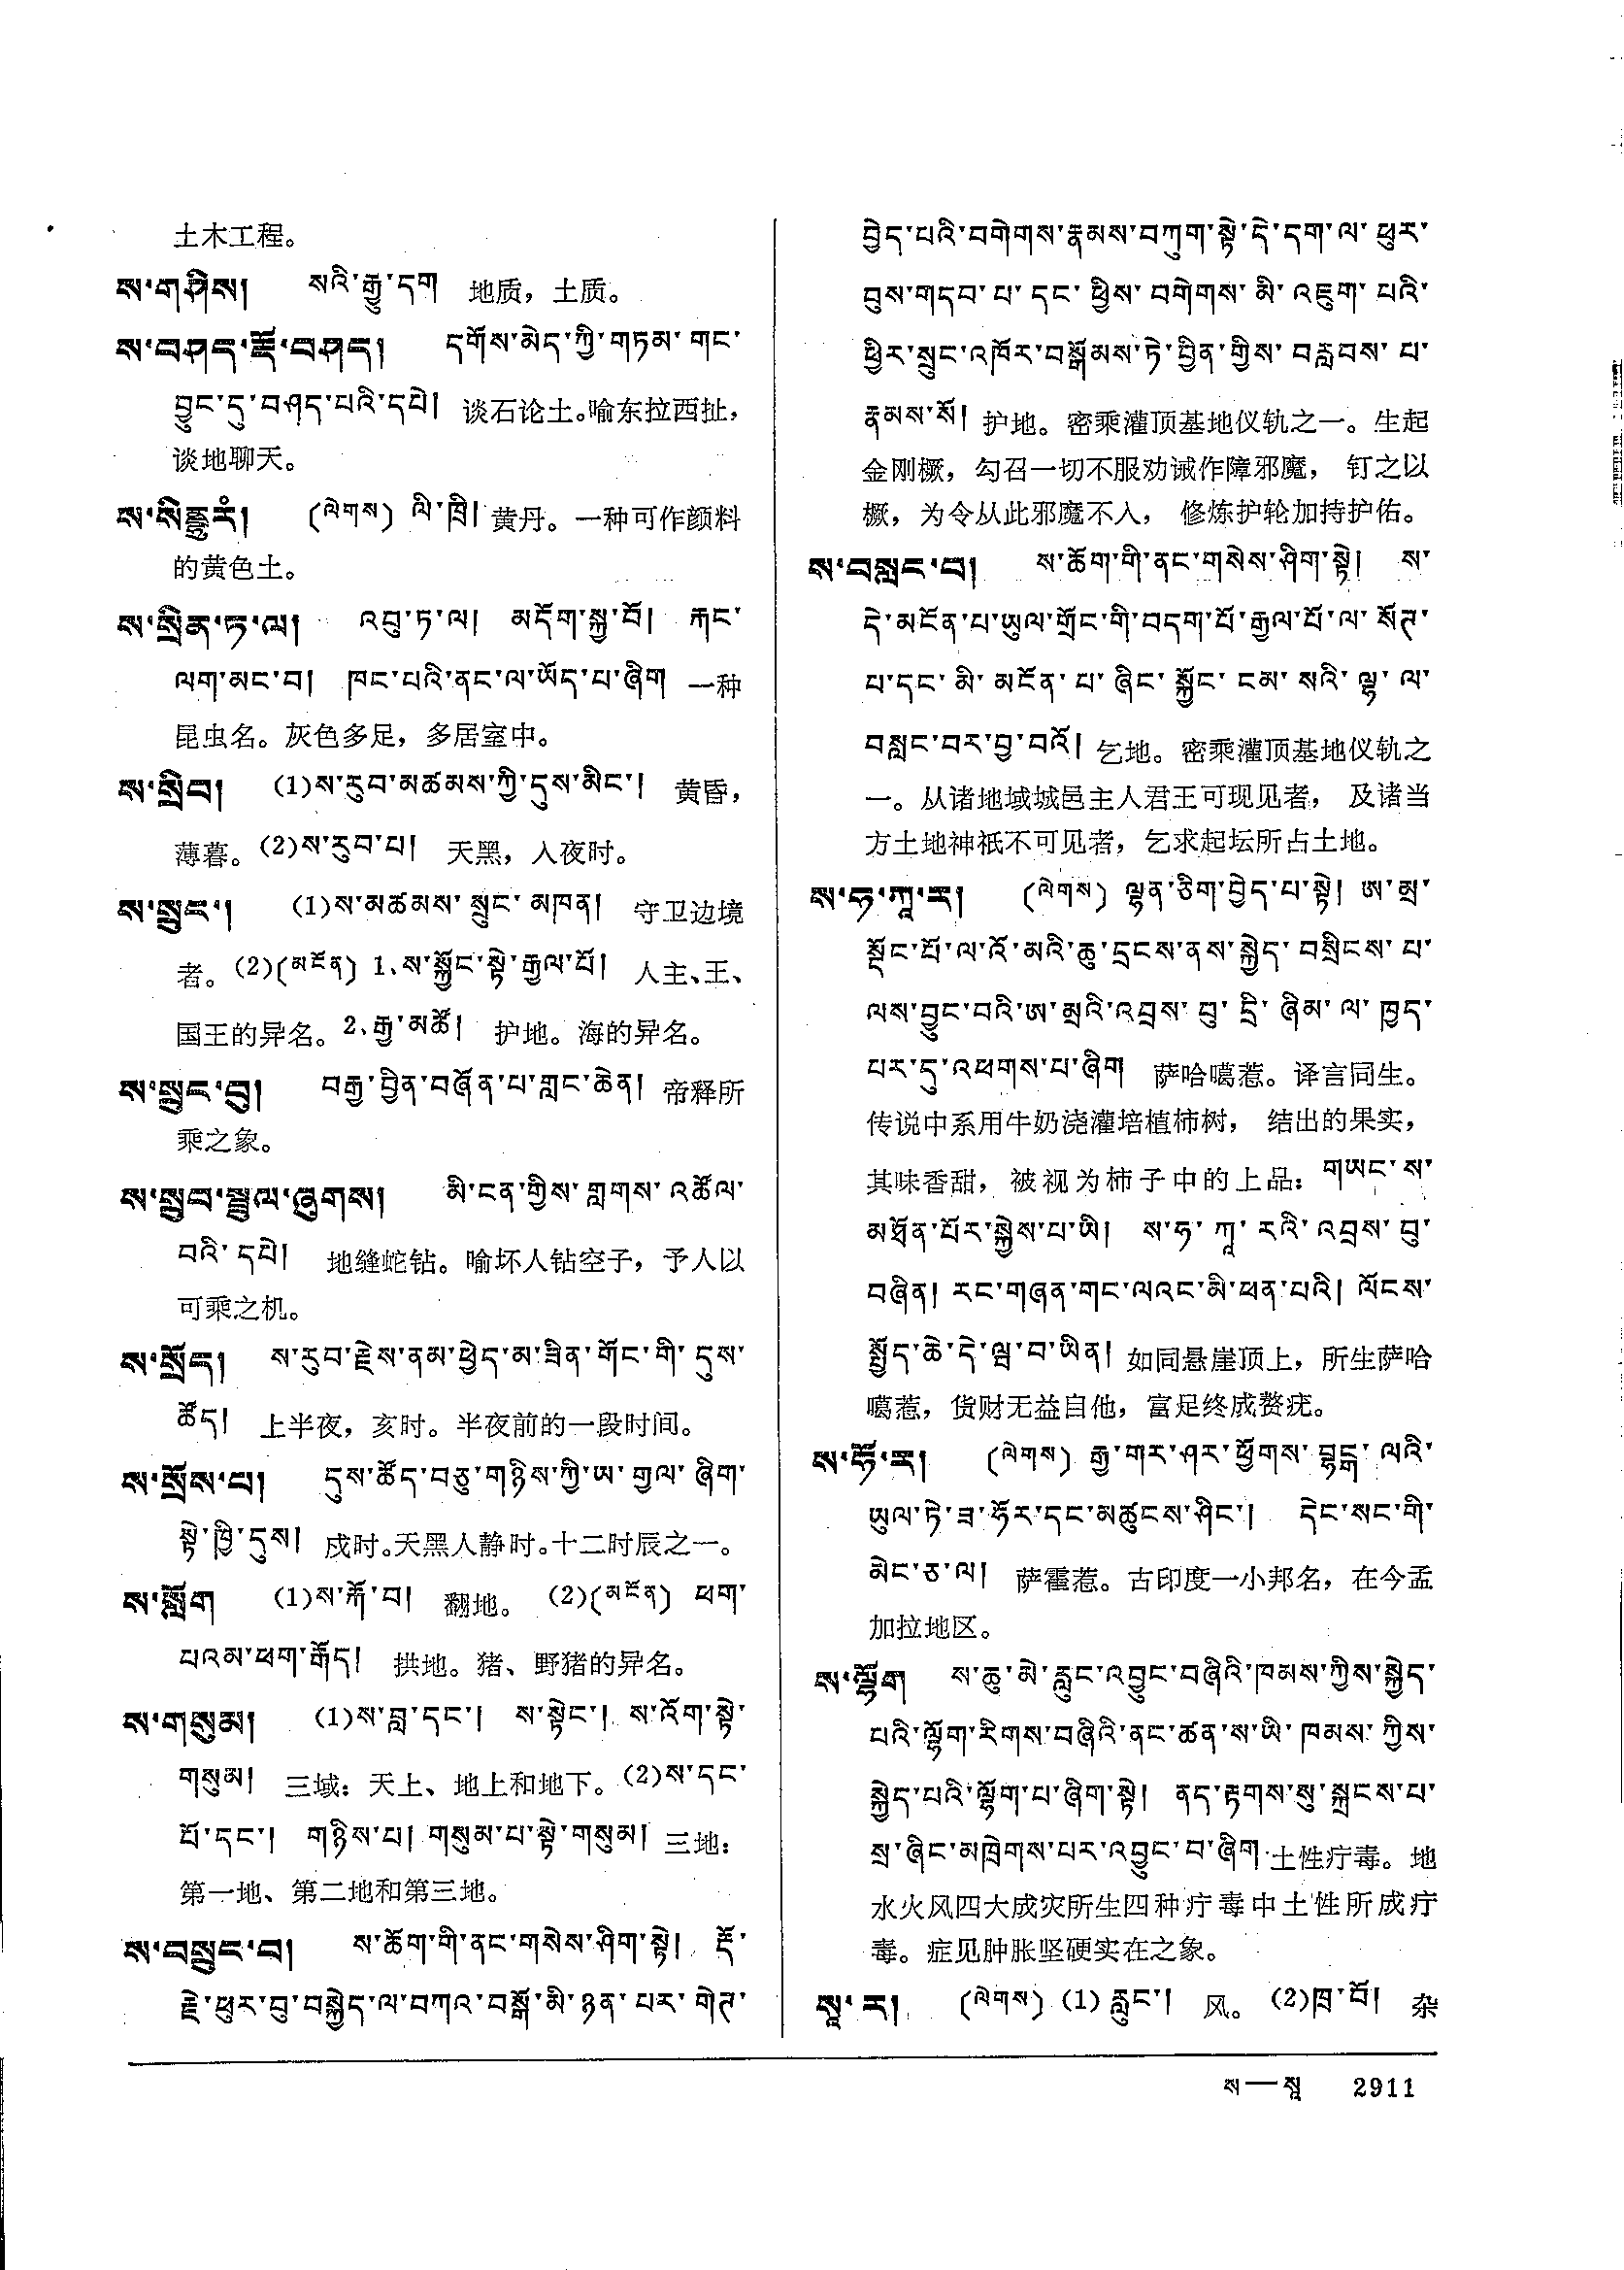 土木工程。
ས་གཤིས། སའི་རྒྱུ་དག 地质，土质。
ས་བཤད་རྡོ་བཤད། དགོས་མེད་ཀྱི་གཏམ་གང་
བྱུང་དུ་བཤད་པའི་དཔེ། 谈石论土。喻东拉西扯，
谈地聊天。
ས་སིནྡྷུ་རཾ། (ལེགས) ལི་ཁྲི། 黄丹。一种可作颜料
的黄色土。
ས་སྲིན་ཏ་ལ། འབུ་ཏ་ལ། མདོག་སྐྱ་བོ། རྐང་
ལག་མང་བ། ཁང་པའི་ནང་ལ་ཡོད་པ་ཞིག 一种
昆虫名。灰色多足，多居室中。
ས་སྲིབ། (1)ས་རུབ་མཚམས་ཀྱི་དུས་མིང་། 黄昏，
薄暮。(2)ས་རུབ་པ། 天黑，入夜时。
ས་སྲུང་། (1)ས་མཚམས་སྲུང་མཁན། 守卫边境
者。(2)(མངོན) 1、ས་སྐྱོང་སྟེ་རྒྱལ་པོ། 人主、王、
国王的异名。2、རྒྱ་མཚོ། 护地。海的异名。
ས་སྲུང་བུ། བརྒྱ་བྱིན་བཞོན་པ་གླང་ཆེན། 帝释所
乘之象。
ས་སྲུབ་སྦྲུལ་ཞུགས། མི་ངན་གྱིས་གླགས་འཚོལ་
བའི་དཔེ། 地缝蛇钻。喻坏人钻空子，予人以
可乘之机。
ས་སྲོད། ས་རུབ་རྗེས་ནམ་ཕྱེད་མ་ཟིན་གོང་གི་དུས་
ཚོད། 上半夜，亥时。半夜前的一段时间。
ས་སྲོས་པ། དུས་ཚོད་བཅུ་གཉིས་ཀྱི་ཨ་གྱལ་ཞིག་
སྟེ་ཁྱི་དུས། 戌时。天黑人静时。十二时辰之一。
ས་སློག (1)ས་རྐོ་བ། 翻地。(2)(མངོན) ཕག་
པའམ་ཕག་རྒོད། 拱地。猪、野猪的异名。
ས་གསུམ། (1)ས་བླ་དང་། ས་སྟེང་། ས་འོག་སྟེ་
གསུམ། 三域：天上、地上和地下。(2)ས་དང་
པོ་དང་། གཉིས་པ། གསུམ་པ་སྟེ་གསུམ། 三地：
第一地、第二地和第三地。
ས་བསྲུང་བ། ས་ཆོག་གི་ནང་གསེས་ཤིག་སྟེ། རྡོ་
རྗེ་ཕུར་བུ་བསྐྱེད་ལ་བཀའ་བསྒོ་མི་ཉན་པར་གེཊ་
བྱེད་པའི་བགེགས་རྣམས་བཀུག་སྟེ་དེ་དག་ལ་ཕུར་
བུས་གདབ་པ་དང་ཕྱིས་བགེགས་མི་འཇུག་པའི་
ཕྱིར་སྲུང་འཁོར་བསྒོམས་ཏེ་བྱིན་གྱིས་བརླབས་པ་
རྣམས་སོ། 护地。密乘灌顶基地仪轨之一。生起
金刚橛，勾召一切不服劝诫作障邪魔，钉之以
橛，为令从此邪魔不入，修炼护轮加持护佑。
ས་བསླང་བ། ས་ཆོག་གི་ནང་གསེས་ཤིག་སྟེ། ས་
དེ་མངོན་པ་ཡུལ་གྲོང་གི་བདག་པོ་རྒྱལ་པོ་ལ་སོཊ་
པ་དང་མི་མངོན་པ་ཞིང་སྐྱོང་ངམ་སའི་ལྷ་ལ་
བསླང་བར་བྱ་བའོ། 乞地。密乘灌顶基地仪轨之
一。从诸地域城邑主人君王可现见者，及诸当
方土地神祇不可见者，乞求起坛所占土地。
ས་ཧ་ཀཱ་ར། (ལེགས) ལྷན་ཅིག་བྱེད་པ་སྟེ། ཨ་མྲ་
སྡོང་པོ་ལ་འོ་མའི་ཆུ་དྲངས་ནས་སྐྱེད་བསྲིངས་པ་
ལས་བྱུང་བའི་ཨ་མྲའི་འབྲས་བུ་དྲི་ཞིམ་ལ་ཁྱད་
པར་དུ་འཕགས་པ་ཞིག 萨哈噶惹。译言同生。
传说中系用牛奶浇灌培植柿树，结出的果实，
其味香甜，被视为柿子中的上品：གཡང་ས་
མཐོན་པོར་སྐྱེས་པ་ཡི། ས་ཧ་ཀཱ་རའི་འབྲས་བུ་
བཞིན། རང་གཞན་གང་ལའང་མི་ཕན་པའི། ལོངས་
སྤྱོད་ཆེ་དེ་ལྟ་བ་ཡིན། 如同悬崖顶上，所生萨哈
噶惹，货财无益自他，富足终成赘疣。
ས་ཧོ་ར། (ལེགས) རྒྱ་གར་ཤར་ཕྱོགས་བྷངྒ་ལའི་
ཡུལ་ཏེ་ཟ་ཧོར་དང་མཚུངས་ཤིང་། དེང་སང་གི་
མེང་ཅ་ལ། 萨霍惹。古印度一小邦名，在今孟
加拉地区。
ས་ལྷོག ས་ཆུ་མེ་རླུང་འབྱུང་བཞིའི་ཁམས་ཀྱིས་སྐྱེད་
པའི་ལྷོག་རིགས་བཞིའི་ནང་ཚན་ས་ཡི་ཁམས་ཀྱིས་
སྐྱེད་པའི་ལྷོག་པ་ཞིག་སྟེ། ནད་རྟགས་སུ་སྐྲངས་པ་
སྲ་ཞིང་མཁྲེགས་པར་འབྱུང་བ་ཞིག 土性疔毒。地
水火风四大成灾所生四种疔毒中土性所成疔
毒。症见肿胀坚硬实在之象。
སཱ་ར། (ལེགས) (1) རླུང་། 风。(2)ཁྲ་བོ། 杂
ས—སཱ 2911